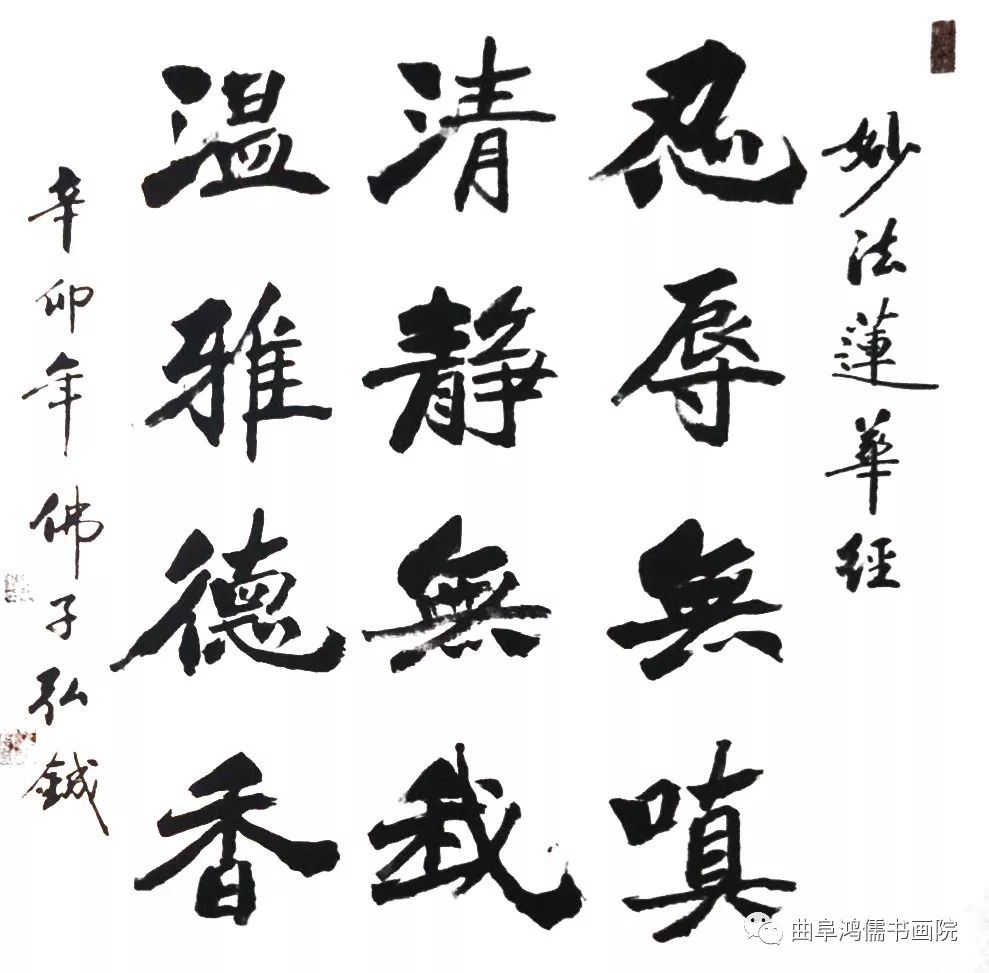 妙法蓮華經
忍辱無嗔
清靜無我
温雅德香
辛卯年 佛子弘鋮
曲阜鸿儒书画院